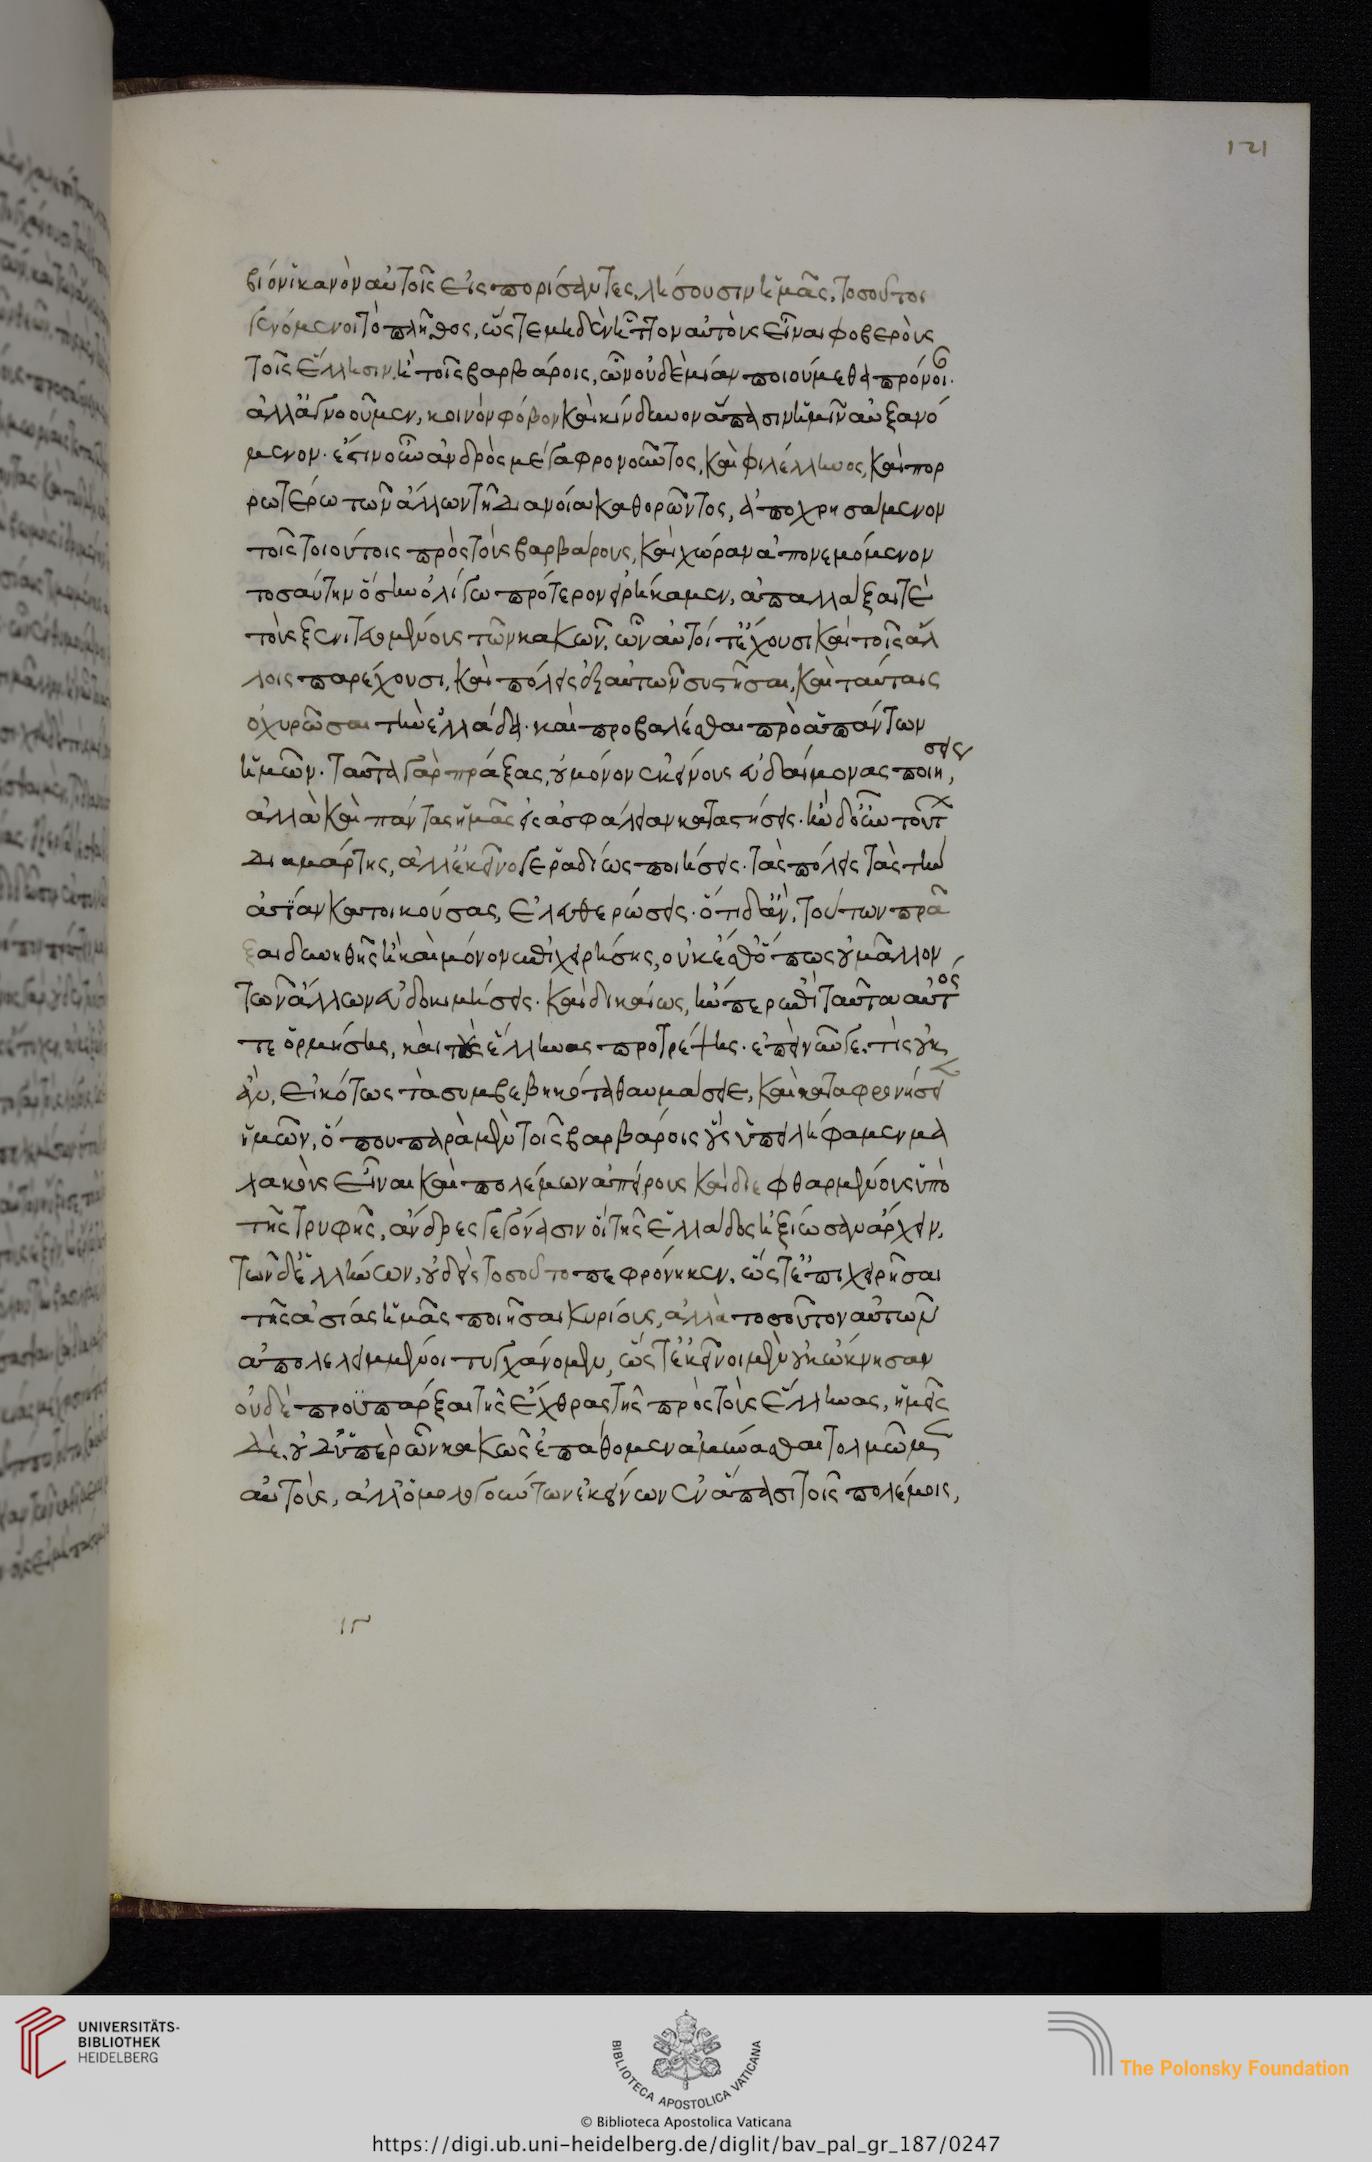 121
βίον ἱκανὸν αὐτοῖς εἰσπορίσαντες, λήσουσιν ἡμᾶς, τοσοῦτοι
γενόμενοι τὸ πλῆθος, ὥστε μηδὲν ἧττον αὐτοὺς εἶναι φοβεροὺς
τοῖς ἕλλησιν, ἢ τοῖς βαρβάροις, ὧν οὐδεμίαν ποιούμεθα πρόνοι·
ἀλλ' ἀγνοοῦμεν, κοινὸν φόβον καὶ κίνδυνον ἅπασιν ἡμῖν αὐξανό
μενον· ἔστιν οὖν ἀνδρὸς μέγα φρονοῦντος, καὶ φιλέλληνος, καὶ πορ
ρωτέρω τῶν ἄλλων τῇ διανοία καθορῶντος, ἀποχρησάμενον
τοῖς τοιούτοις πρὸς τοὺς βαρβάρους, καὶ χώραν ἀπονεμόμενον
τοσαύτην ὅσην ὀλίγω πρότερον εἰρήκαμεν, ἀπαλλάξαι τὲ
τοὺς ξενιτευομένους τῶν κακῶν, ὧν αὐτοί τ' ἔχουσι καὶ τοῖς ἄλ
λοις παρέχουσι, καὶ πόλεις ἐξ αὐτῶν συστῆσαι, καὶ ταύταις
ὀχυρῶσαι τὴν ἑλλάδα· καὶ προβαλέσθαι πρὸ ἁπάντων
ἡμῶν· ταῦτα γὰρ πράξας, οὐ μόνον ἐκείνους εὐδαίμονας ποιήσεις,
ἀλλὰ καὶ πάντας ἡμᾶς εἰς ἀσφάλειαν καταστήσεις· ἢν δ' οὖν τούτ
διαμάρτης, ἀλλ' ἐκεῖνό γε ῥαδίως ποιήσεις· τὰς πόλεις τὰς τὴν
ἀσίαν κατοικούσας, ἐλευθερώσεις· ὅτι δ' ἂν, τούτων πρᾶ
ξαι δυνηθῆς ἢ καὶ μόνον ἐπιχειρήσης, οὐκ ἔσθ' ὅπως οὐ μᾶλλον
τῶν ἄλλων εὐδοκιμήσεις· καὶ δικαίως, ἤνπερ ἐπὶ ταῦτα αὐτός
τε ὁρμήσης, καὶ τοὺς ἕλληνας προτρέψης· ἐπεὶ νῦν γε, τίς οὐκ
ἂν, εἰκότως τὰ συμβεβηκότα θαυμάσειε, καὶ καταφρονήσει
ἡμῶν, ὅπου παρὰ μὲν τοῖς βαρβάροις οὓς ὑπειλήφαμεν μα
λακοὺς εἶναι καὶ πολέμων ἀπείρους καὶ διεφθαρμένους ὑπὸ
τῆς τρυφῆς, ἄνδρες γεγόνασιν οἳ τῆς ἑλλάδος ἠξίωσαν ἄρχειν,
τῶν δ' ἑλλήνων, οὐδεὶς τοσοῦτο πεφρόνηκεν, ὥστ' ἐπιχειρῆσαι
τῆς ἀσίας ἡμᾶς ποιῆσαι κυρίους, ἀλλὰ τοσοῦτον αὐτῶν
ἀπολελειμμένοι τυγχάνομεν, ὥστ' ἐκεῖνοι μὲν οὐκ ὤκνησαν
οὐδὲ προϋπάρξαι τῆς ἔχθρας τῆς πρὸς τοὺς ἕλληνας, ἡμεῖς
δὲ, οὐδ' ὑπὲρ ὧν κακῶς ἐπάθομεν ἀμύνασθαι τολμῶμεν
αὐτοὺς, ἀλλ' ὁμολογούντων ἐκείνων ἐν ἅπασι τοῖς πολέμοις,
UNIVERSITÄTS-
BIBLIOTHEK
HEIDELBERG
BIBLIOTECA APOSTOLICA VATICANA
The Polonsky Foundation
© Biblioteca Apostolica Vaticana
https://digi.ub.uni-heidelberg.de/diglit/bav_pal_gr_187/0247